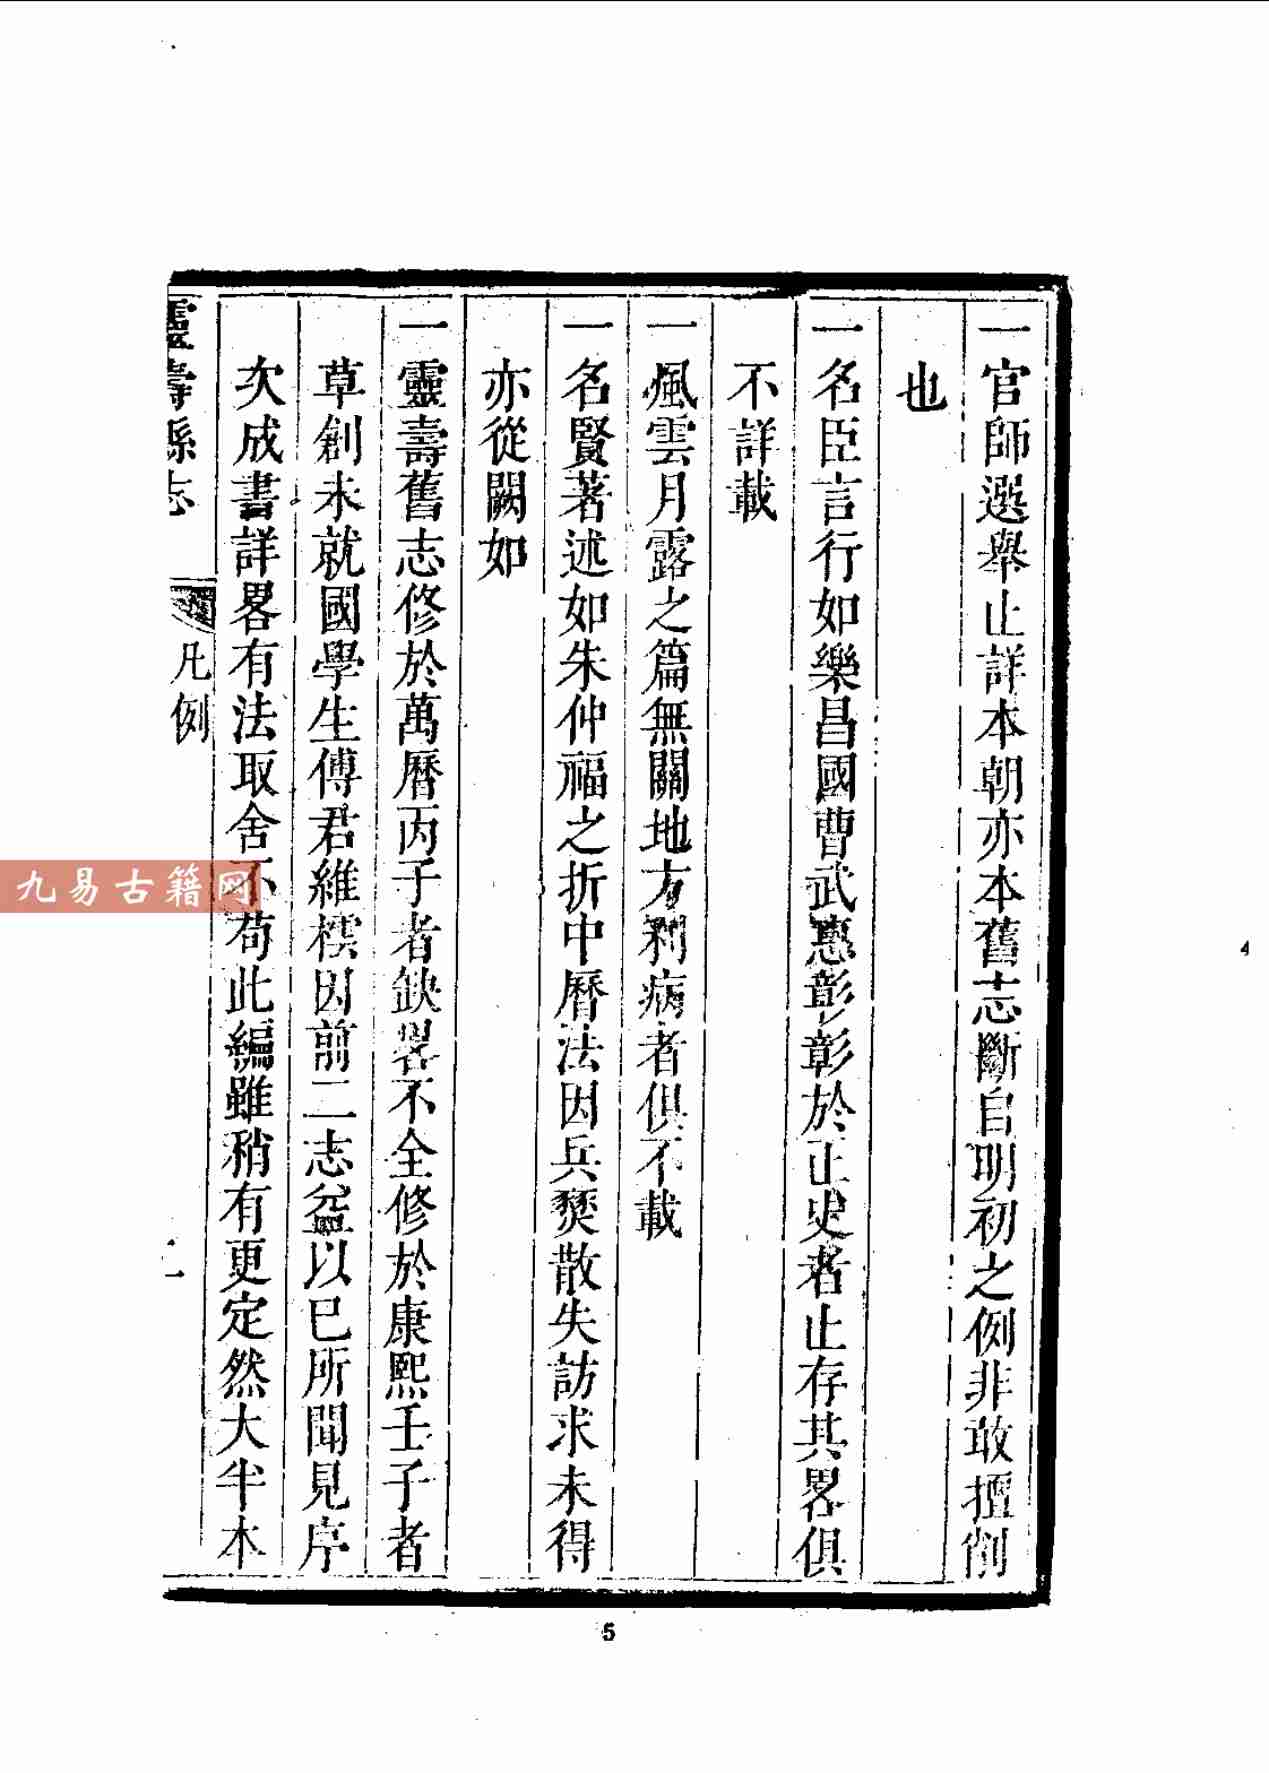 一官師選舉止詳本朝亦本舊志斷自明初之例非敢擅削
也
一名臣言行如樂昌國曹武惠彰彰於正史者止存其畧俱
不詳載
一風雲月露之篇無關地方利病者俱不載
一名賢著述如朱仲福之折中曆法因兵燹散失訪求未得
亦從闕如
一靈壽舊志修於萬曆丙子者缺畧不全修於康熙壬子者
草創未就國學生傅君維橒因前二志益以已所聞見序
次成書詳畧有法取舍不苟此編雖稍有更定然大半本
靈壽縣志
凡例
二
九易古籍网
5
4